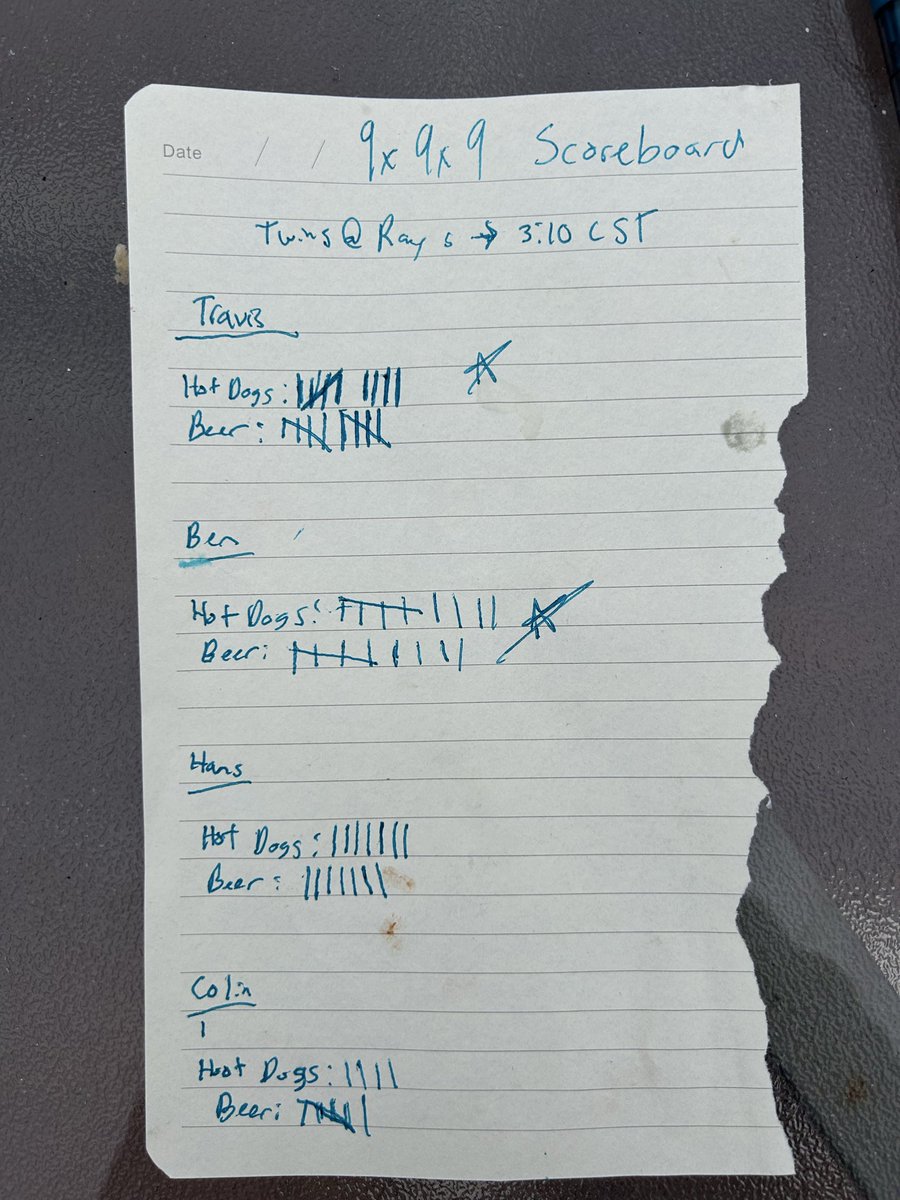 Date / / 9x9x9 Scoreboard
Twins @ Rays → 3:10 CST
Travis
Hot Dogs: 卌 ||||
Beer: 卌 卌
Ben
Hot Dogs: 卌 ||||
Beer: 卌 ||||
Hans
Hot Dogs: |||||||
Beer: |||||||
Colin
Hot Dogs: ||||
Beer: 卌 |